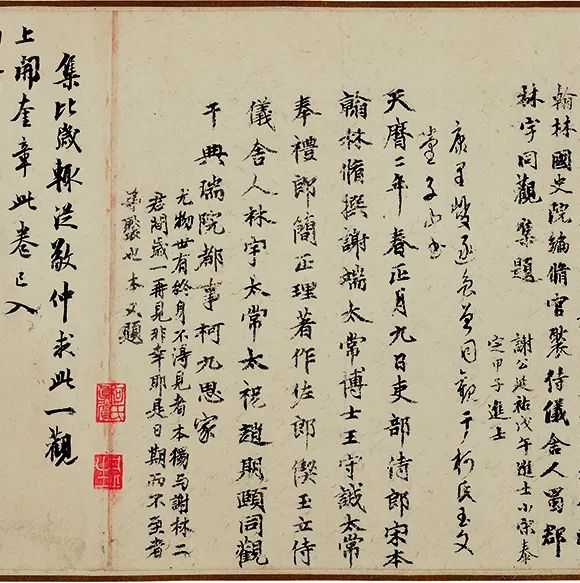 翰林國史院編脩官褧侍儀舍人蜀郡
林宇同觀 集題
謝公延祐戊午進士小宋泰
定甲子進士
康里 同觀于柯氏玉文
堂子山書
天曆二年春正月九日吏部侍郎宋本
翰林脩撰謝端太常博士王守誠太常
奉禮郎簡正理著作佐郎偰玉立侍
儀舍人林宇太常太祝趙期頤同觀
于典瑞院都事柯九思家
尤物世有終身不得見者本獨與謝林二
君閒歲一再見非幸耶具日期而不至者
褧也本又題
集比歲輒從敬仲求此一觀
上開奎章此卷已入